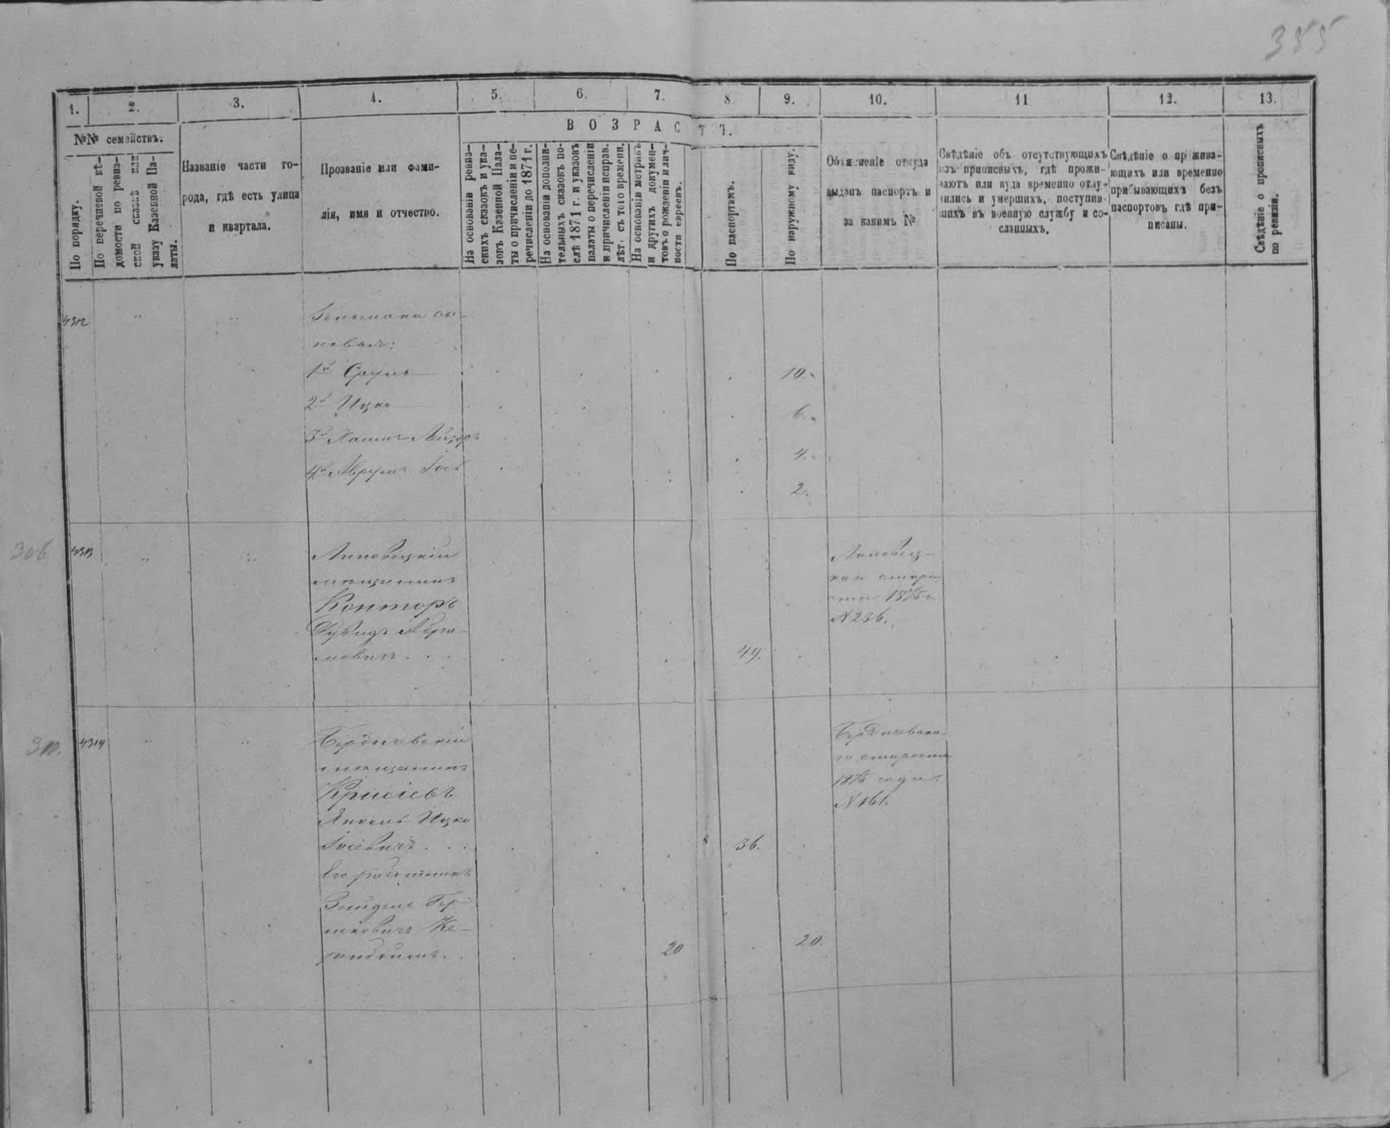 355
1. 2. 3. 4. 5. 6. 7. 8. 9. 10. 11 12. 13.
ВОЗРАСТЪ.
№№ семействъ.
По порядку.
По перечневой вѣ-
домости по ревиз-
ской сказкѣ или
указу Казенной Па-
латы.
Названіе части го-
рода, гдѣ есть улица
и квартала.
Прозваніе или фами-
лія, имя и отчество.
На основаніи ревиз-
скихъ сказокъ и ука-
зовъ Казенной Пала-
ты о причисленіи и пе-
речисленіи до 1871 г.
На основаніи дополни-
тельныхъ сказокъ по-
слѣ 1871 г. и указовъ
палаты о перечисленіи
и причисленіи исправ.
лѣтъ съ того времени.
На основаніи метрикъ
и другихъ докумен-
товъ о рожденіи и лич-
ности евреевъ.
По паспортамъ.
По наружному виду.
Объясненіе откуда
выданъ паспортъ и
за какимъ №
Свѣдѣніе объ отсутствующихъ
изъ приписныхъ, гдѣ прожи-
ваютъ или куда временно отлу-
чились и умершихъ, поступив-
шихъ въ военную службу и со-
сланныхъ.
Свѣдѣніе о прожива-
ющихъ или временно
прибывающихъ безъ
паспортовъ гдѣ при-
писаны.
Свѣдѣніе о прописныхъ
по ревизіи.
4312
сы-
новья:
1й Сруль 10.
2й Ицко 6.
3й Хаимъ Лейзоръ 4.
4й Аврумъ Іось 2.
306. 4313
Липовецкій
мѣщанинъ
Конторъ
Дувидъ Абра-
мовичъ 49.
Липовец-
каго старо-
сты 1875 г.
№ 256.
310. 4314
Бердичевскій
мѣщанинъ
Ицко
Іосевичъ 36.
Бердичевска-
го старосты
1875 года
№ 161.
Его работникъ
Зейдель Гер-
шковичъ 20 20.